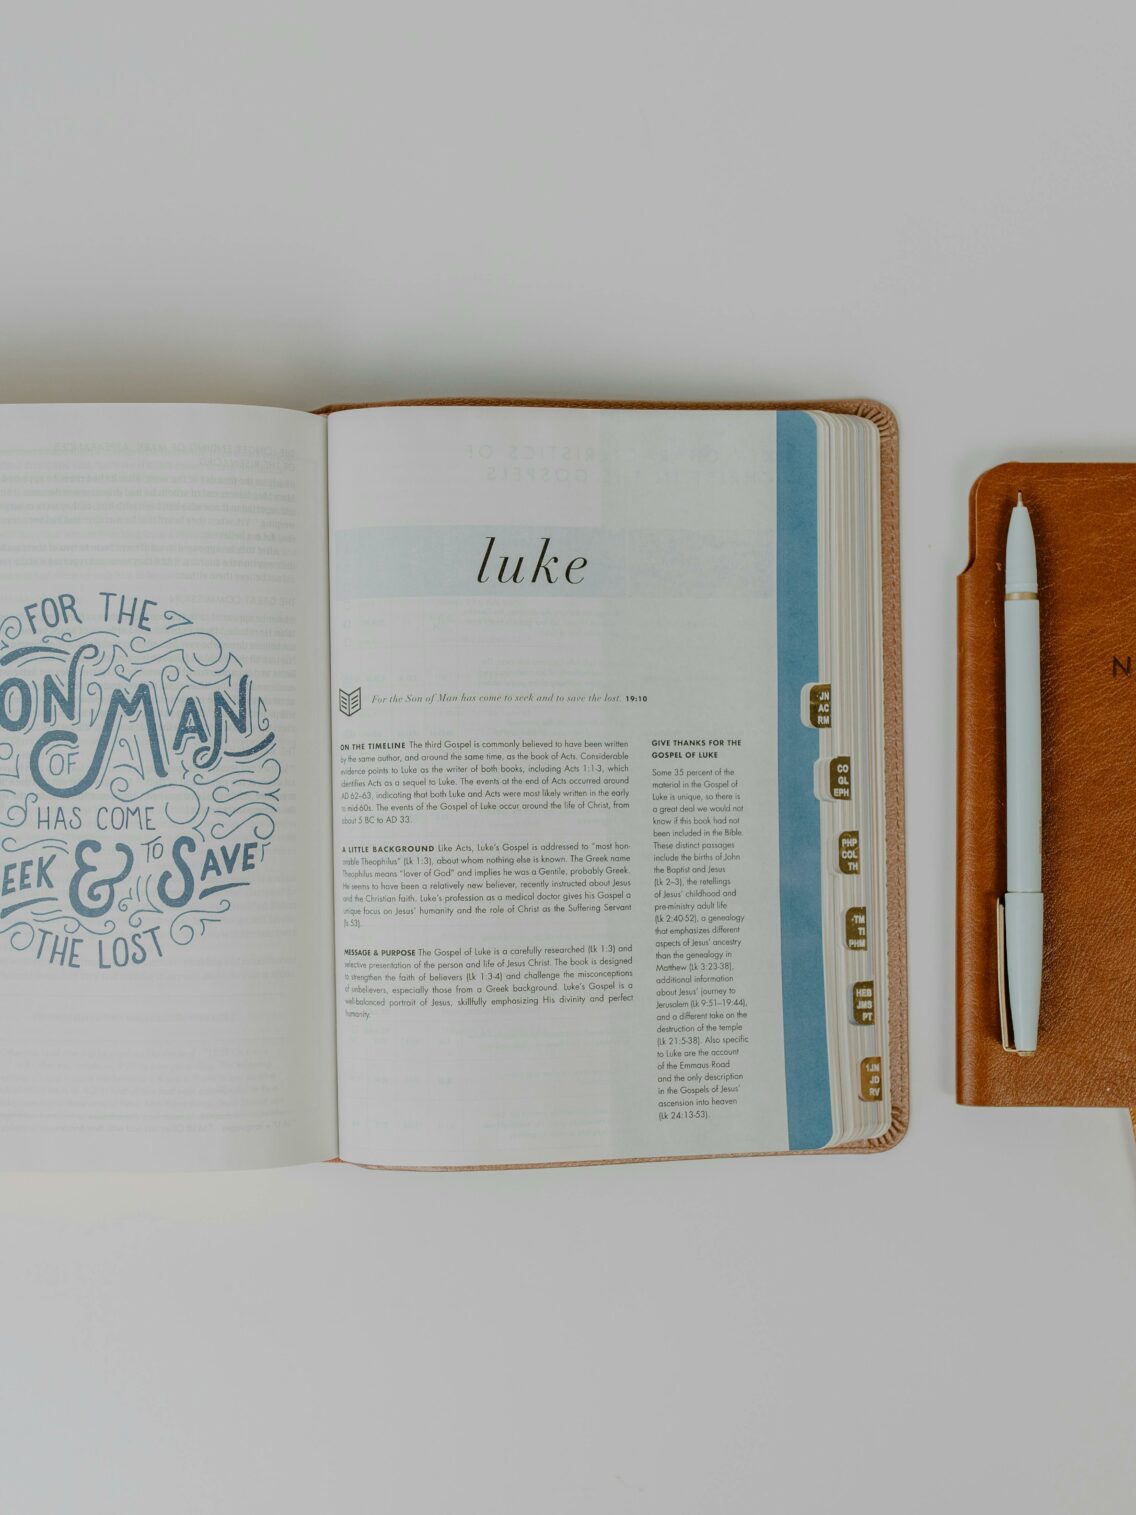 FOR THE
ON MAN
OF
HAS COME
EEK & TO SAVE
THE LOST
luke
For the Son of Man has come to seek and to save the lost. 19:10
ON THE TIMELINE The third Gospel is commonly believed to have been written
by the same author, and around the same time, as the book of Acts. Considerable
evidence points to Luke as the writer of both books, including Acts 1:1-3, which
identifies Acts as a sequel to Luke. The events at the end of Acts occurred around
AD 62–63, indicating that both Luke and Acts were most likely written in the early
to mid-60s. The events of the Gospel of Luke occur around the life of Christ, from
about 5 BC to AD 33.
A LITTLE BACKGROUND Like Acts, Luke's Gospel is addressed to "most hon-
orable Theophilus" (Lk 1:3), about whom nothing else is known. The Greek name
Theophilus means "lover of God" and implies he was a Gentile, probably Greek.
He seems to have been a relatively new believer, recently instructed about Jesus
and the Christian faith. Luke's profession as a medical doctor gives his Gospel a
unique focus on Jesus' humanity and the role of Christ as the Suffering Servant
(Is 53).
MESSAGE & PURPOSE The Gospel of Luke is a carefully researched (Lk 1:3) and
selective presentation of the person and life of Jesus Christ. The book is designed
to strengthen the faith of believers (Lk 1:3-4) and challenge the misconceptions
of unbelievers, especially those from a Greek background. Luke's Gospel is a
well-balanced portrait of Jesus, skillfully emphasizing His divinity and perfect
humanity.
GIVE THANKS FOR THE
GOSPEL OF LUKE
Some 35 percent of the
material in the Gospel of
Luke is unique, so there is
a great deal we would not
know if this book had not
been included in the Bible.
These distinct passages
include the births of John
the Baptist and Jesus
(Lk 2–3), the retellings
of Jesus' childhood and
pre-ministry adult life
(Lk 2:40-52), a genealogy
that emphasizes different
aspects of Jesus' ancestry
than the genealogy in
Matthew (Lk 3:23-38),
additional information
about Jesus' journey to
Jerusalem (Lk 9:51–19:44),
and a different take on the
destruction of the temple
(Lk 21:5-38). Also specific
to Luke are the account
of the Emmaus Road
and the only description
in the Gospels of Jesus'
ascension into heaven
(Lk 24:13-53).
JN
AC
RM
CO
GL
EPH
PHP
COL
TH
TM
TI
PHM
HEB
JMS
PT
1JN
JD
RV
N